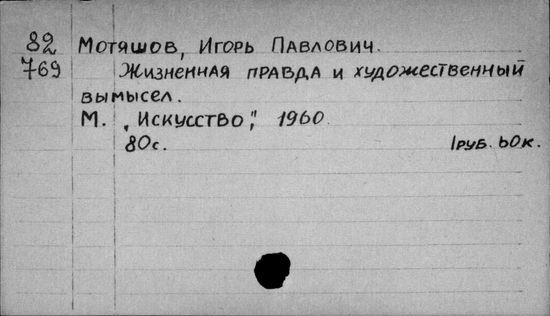 82 Мотяшов, Игорь Павлович.
769 Жизненная правда и художественный
вымысел.
М. „Искусство", 1960.
80с. 1руб. 60к.